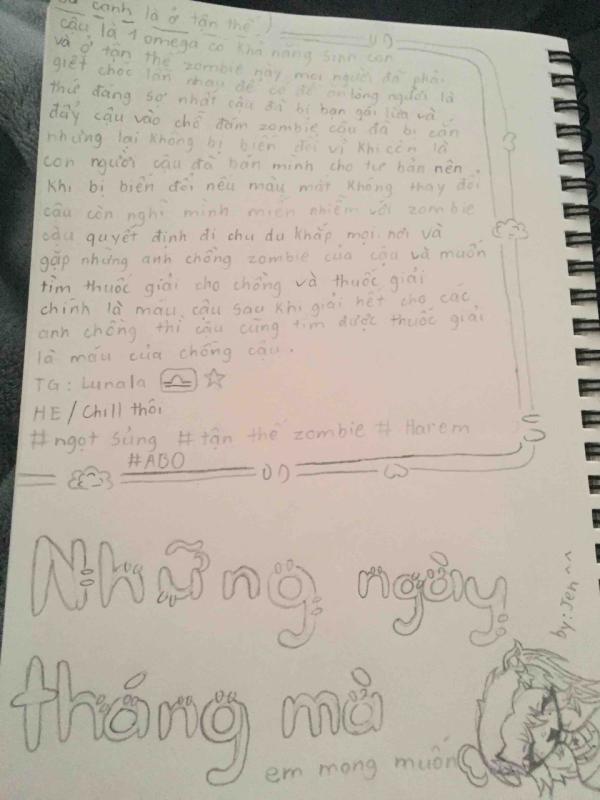 cảnh là ở tận thế )
cậu là 1 omega có khả năng sinh con
và ở tận thế zombie này mọi người đã phải
giết chóc lẫn nhau để có đồ ăn lòng người là
thứ đáng sợ nhất cậu đã bị bạn gái lừa và
đẩy cậu vào chỗ đám zombie cậu đã bị cắn
nhưng lại không bị biến đổi vì khi còn là
con người cậu đã bán mình cho tư bản nên
khi bị biến đổi nếu màu mắt không thay đổi
cậu còn nghĩ mình miễn nhiễm với zombie
cậu quyết định đi chu du khắp mọi nơi và
gặp những anh chồng zombie của cậu và muốn
tìm thuốc giải cho chồng và thuốc giải
chính là máu cậu sau khi giải hết cho các
anh chồng thì cậu cũng tìm được thuốc giải
là máu của chồng cậu.
TG: Lunala
HE / Chill thôi
#ngọt sủng #tận thế zombie # Harem
#ABO
Những ngày
tháng mà
em mong muốn
by: Jen ^^